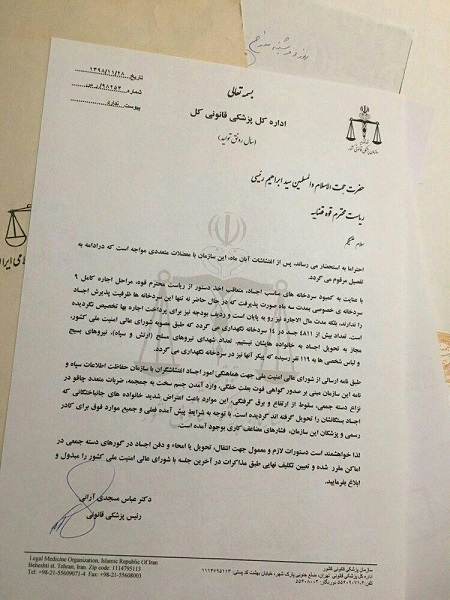 روز دوشنبه
تاریخ: ۱۳۹۸/۱۱/۲۸
شماره: ۹۸۲۵۳/ر.ص
پیوست: ندارد
بسمه تعالی
اداره کل پزشکی قانونی کل
(سال رونق تولید)
سازمان پزشکی قانونی کشور
حضرت حجت الاسلام والمسلمین سید ابراهیم رئیسی
ریاست محترم قوه قضاییه
سلام علیکم
احتراما به استحضار می رساند، پس از اغتشاشات آبان ماه، این سازمان با معضلات متعددی مواجه است که درادامه به
تفصیل مرقوم می گردد.
با عنایت به کمبود سردخانه های مناسب اجساد، متعاقب اخذ دستور از ریاست محترم قوه، مراحل اجاره کامل ۹
سردخانه ی خصوصی بمدت سه ماه صورت پذیرفت که در حال حاضر نه تنها این سردخانه ها ظرفیت پذیرش اجساد
را ندارند، بلکه مدت مال الاجاره نیز رو به پایان است و ردیف بودجه نیز برای پرداخت اجاره بها تخصیص نگردیده
است. تعداد بیش از ۴۸۱۱ جسد در ۱۴ سردخانه نگهداری می گردد که طبق مصوبه شورای عالی امنیت ملی کشور،
مجاز به تحویل اجساد به خانواده هایشان نیستیم. تعداد شهدای نیروهای مسلح (ارتش و سپاه)، نیروهای بسیج
و لباس شخصی ها به ۱۱۹ نفر رسیده که پیکر آنها نیز در سردخانه نگهداری می گردد.
طبق نامه ارسالی از شورای عالی امنیت ملی جهت هماهنگی امور اجساد اغتشاشگران با سازمان حفاظت اطلاعات سپاه و
نامه این سازمان مبنی بر صدور گواهی فوت بعلت خفگی، وارد آمدن جسم سخت به جمجمه، ضربات متعدد چاقو در
نزاع دسته جمعی، سقوط از ارتفاع و برق گرفتگی، این موارد باعث اعتراض شدید خانواده های جانباختگانی که
اجساد بستگانشان را تحویل گرفته اند گردیده است. با توجه به شرایط پیش آمده فعلی و جمیع موارد فوق برای کادر
رسمی و پزشکان این سازمان، فشارهای مضاعف کاری بوجود آمده است.
لذا خواهشمند است دستورات لازم و معمول جهت انتقال، تحویل یا امحاء و دفن اجساد در گورهای دسته جمعی در
اماکن مقرر شده و تعیین تکلیف نهایی طبق مذاکرات در آخرین جلسه با شورای عالی امنیت ملی کشور را مبذول و
ابلاغ بفرمایید.
دکتر عباس مسجدی آرانی
رئیس پزشکی قانونی
Legal Medicine Organization, Islamic Republic Of Iran
Beheshti st. Tehran, Iran. Zip code: 1114795113
Tel: +98-21-55609071-4 Fax: +98-21-55608003
سازمان پزشکی قانونی کشور
اداره کل پزشکی قانونی تهران، ضلع جنوبی پارک شهر، خیابان بهشت کد پستی: ۱۱۱۴۷۹۵۱۱۳